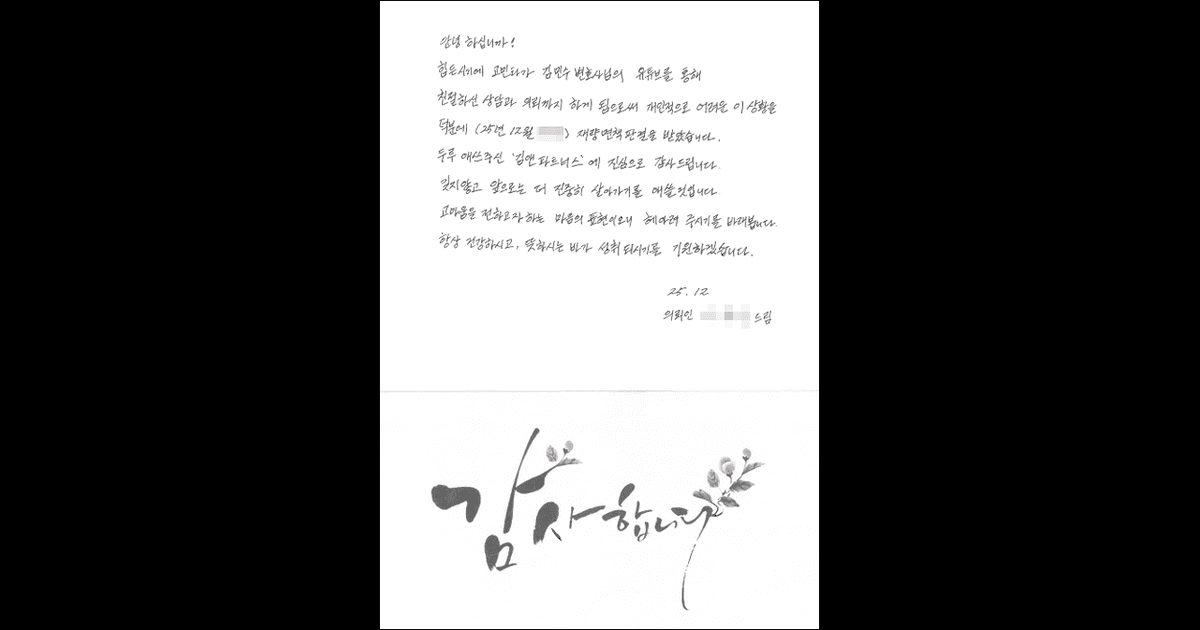 안녕 하십니까!
힘든시기에 고민하다가 김민수 변호사님의 유튜브를 통해
친절하신 상담과 의뢰까지 하게 됨으로써 개인적으로 어려운 이 상황을
덕분에 (25년 12월 ) 재량면책 판결을 받았습니다.
두루 애쓰주신 '김앤파트너스'에 진심으로 감사드립니다.
잊지않고 앞으로는 더 진중히 살아가기를 애쓸것입니다.
고마움을 전하고자 하는 마음의 표현이오니 헤아려 주시기를 바래봅니다.
항상 건강하시고, 뜻하시는 바가 성취되시기를 기원하겠습니다.
25. 12
의뢰인 드림
감사합니다